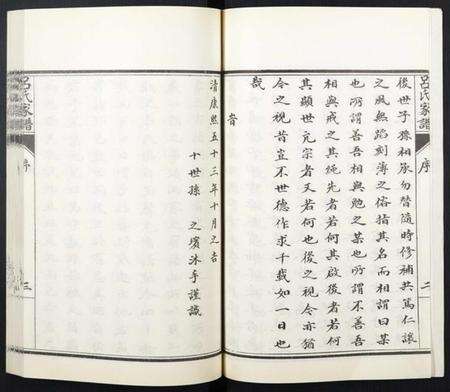 呂氏家譜
序
二
後世子孫相承勿替隨時修補共篤仁讓
之風無蹈刻薄之俗指其名而相謂曰某
也所謂善吾相與勉之某也所謂不善吾
相與戒之其繩先者若何其啟後者若何
其顯世亢宗者又若何也後之視今亦猶
今之視昔豈不世德作求千載如一日也
哉
旹
清康熙五十三年十月之吉
十世孫 之濱沐手謹識
呂氏家譜
序
三